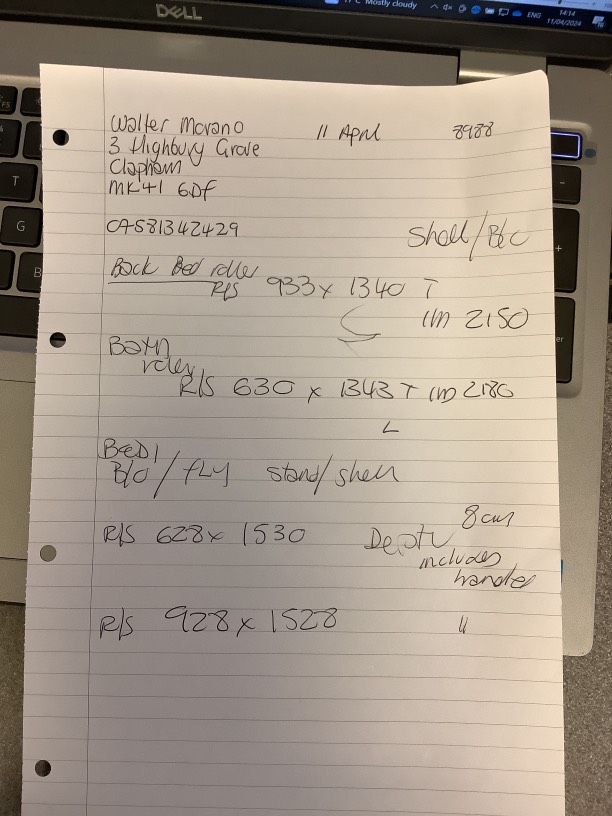 DELL
Mostly cloudy ENG 14:14
11/04/2024
Walter Morano 11 April 8988
3 Highbury Grove
Clapham
MK41 6DF
CAS81342429
Shell/Blc
Back Bed roller
R/S 933 x 1340 T
1m 2150
Bath
roller
R/S 630 x 1343 T 1m 2180
L
Bed 1
B/O / fly stand/shell
8cm
R/S 628 x 1530 Depth
includes
handles
R/S 928 x 1528 "